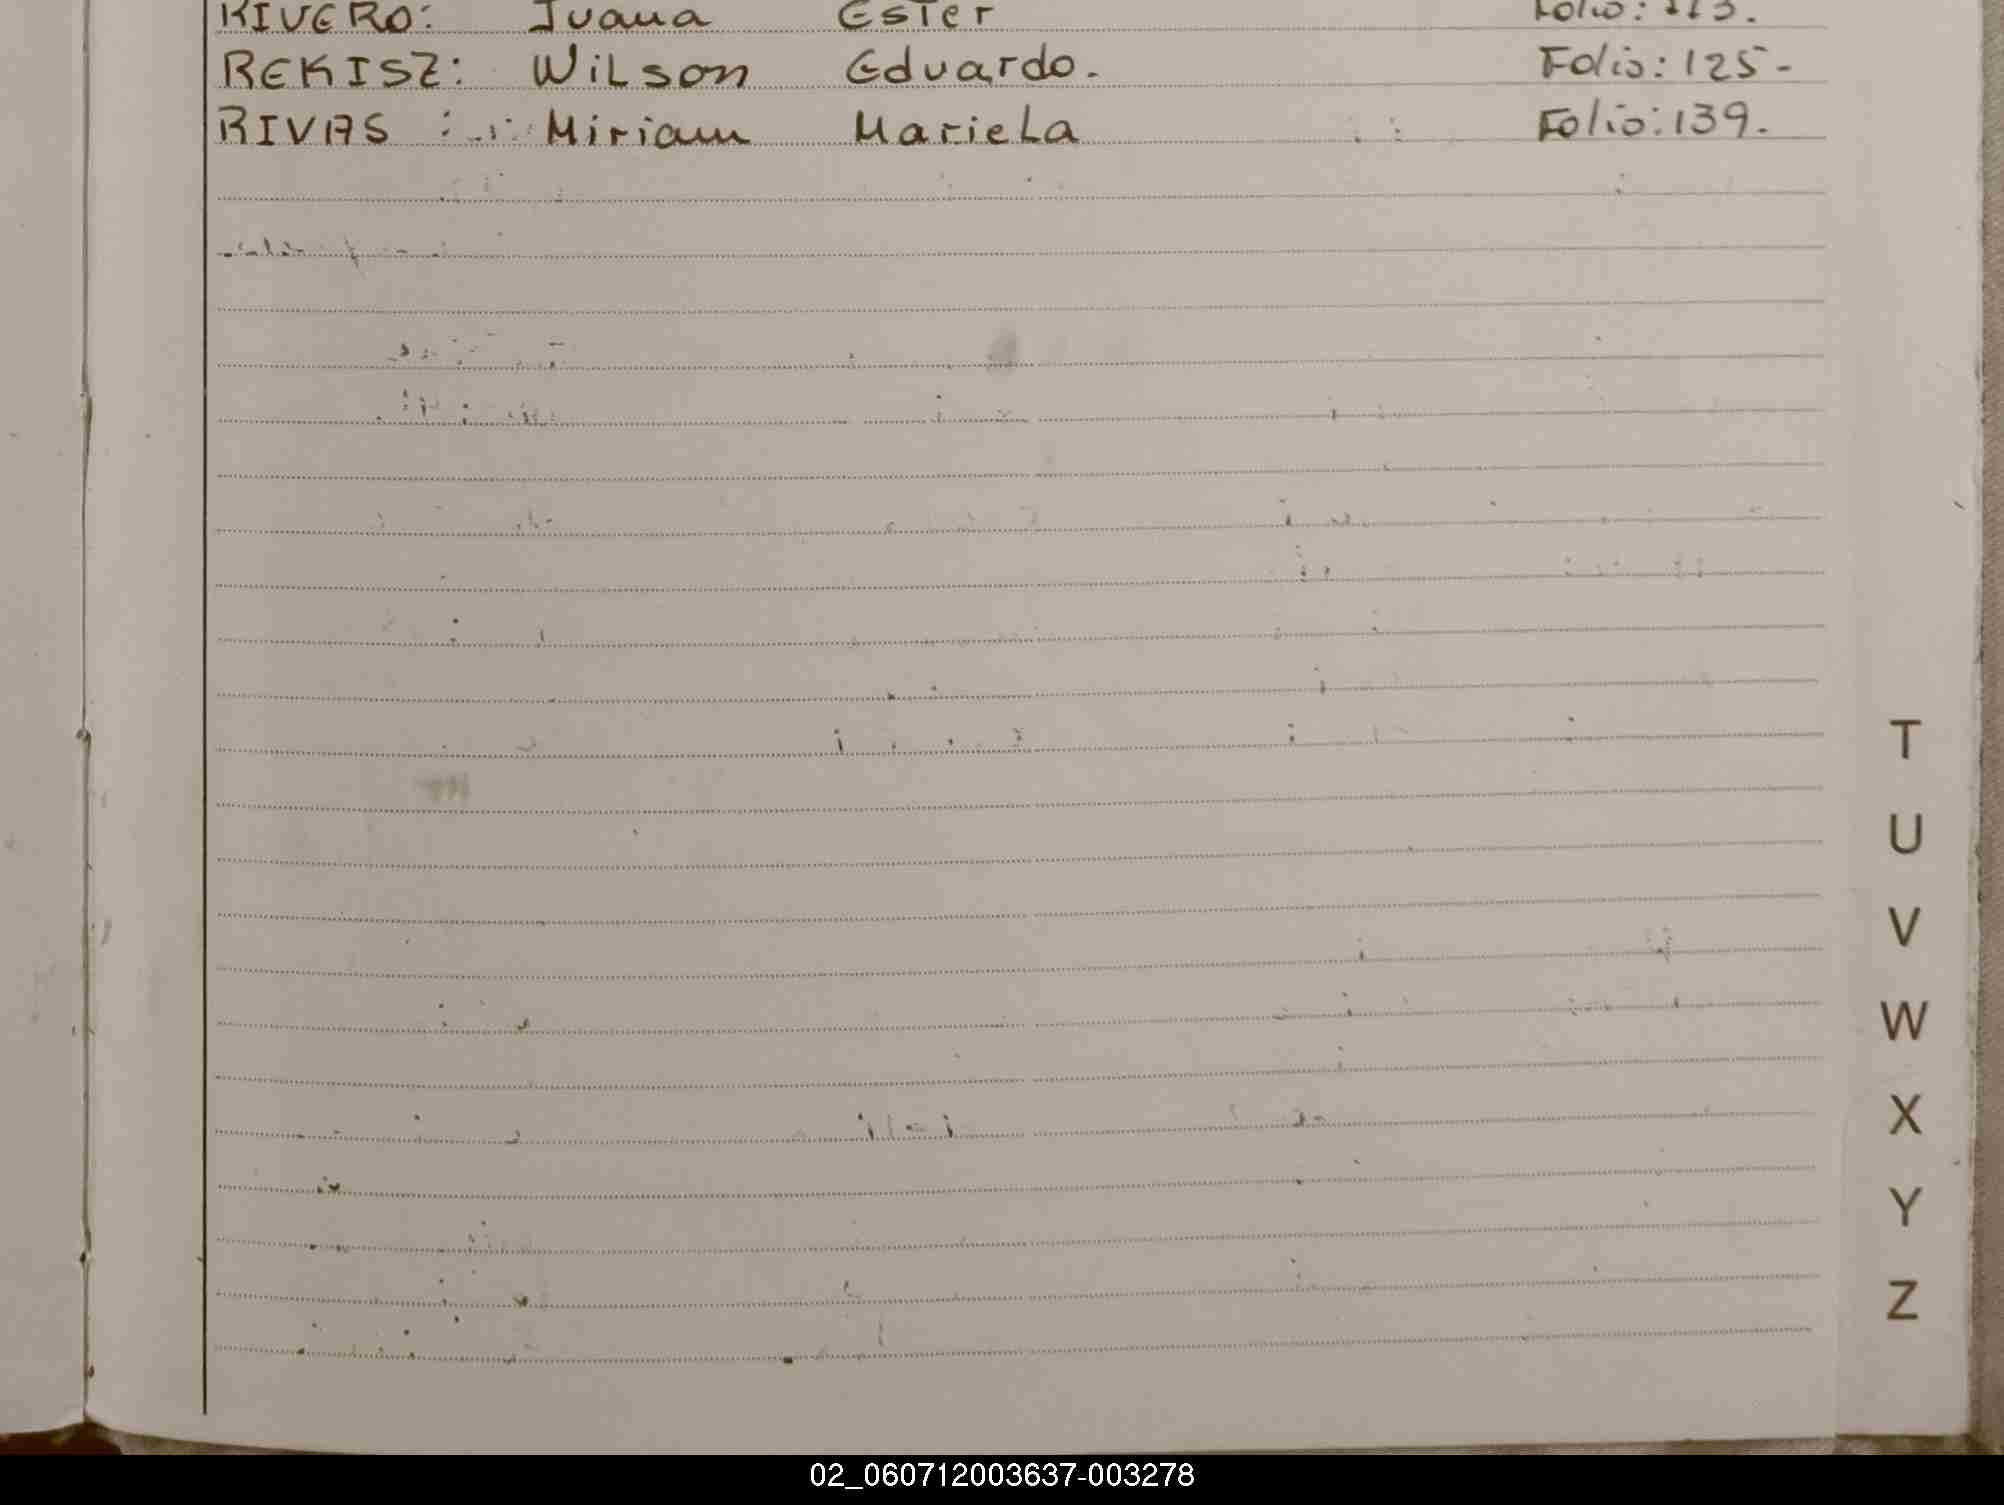 RIVERO: Juana Ester Folio: 113.
REKISZ: Wilson Eduardo. Folio: 125-
RIVAS : Miriam Mariela Folio: 139.
T
U
V
W
X
Y
Z
02_060712003637-003278